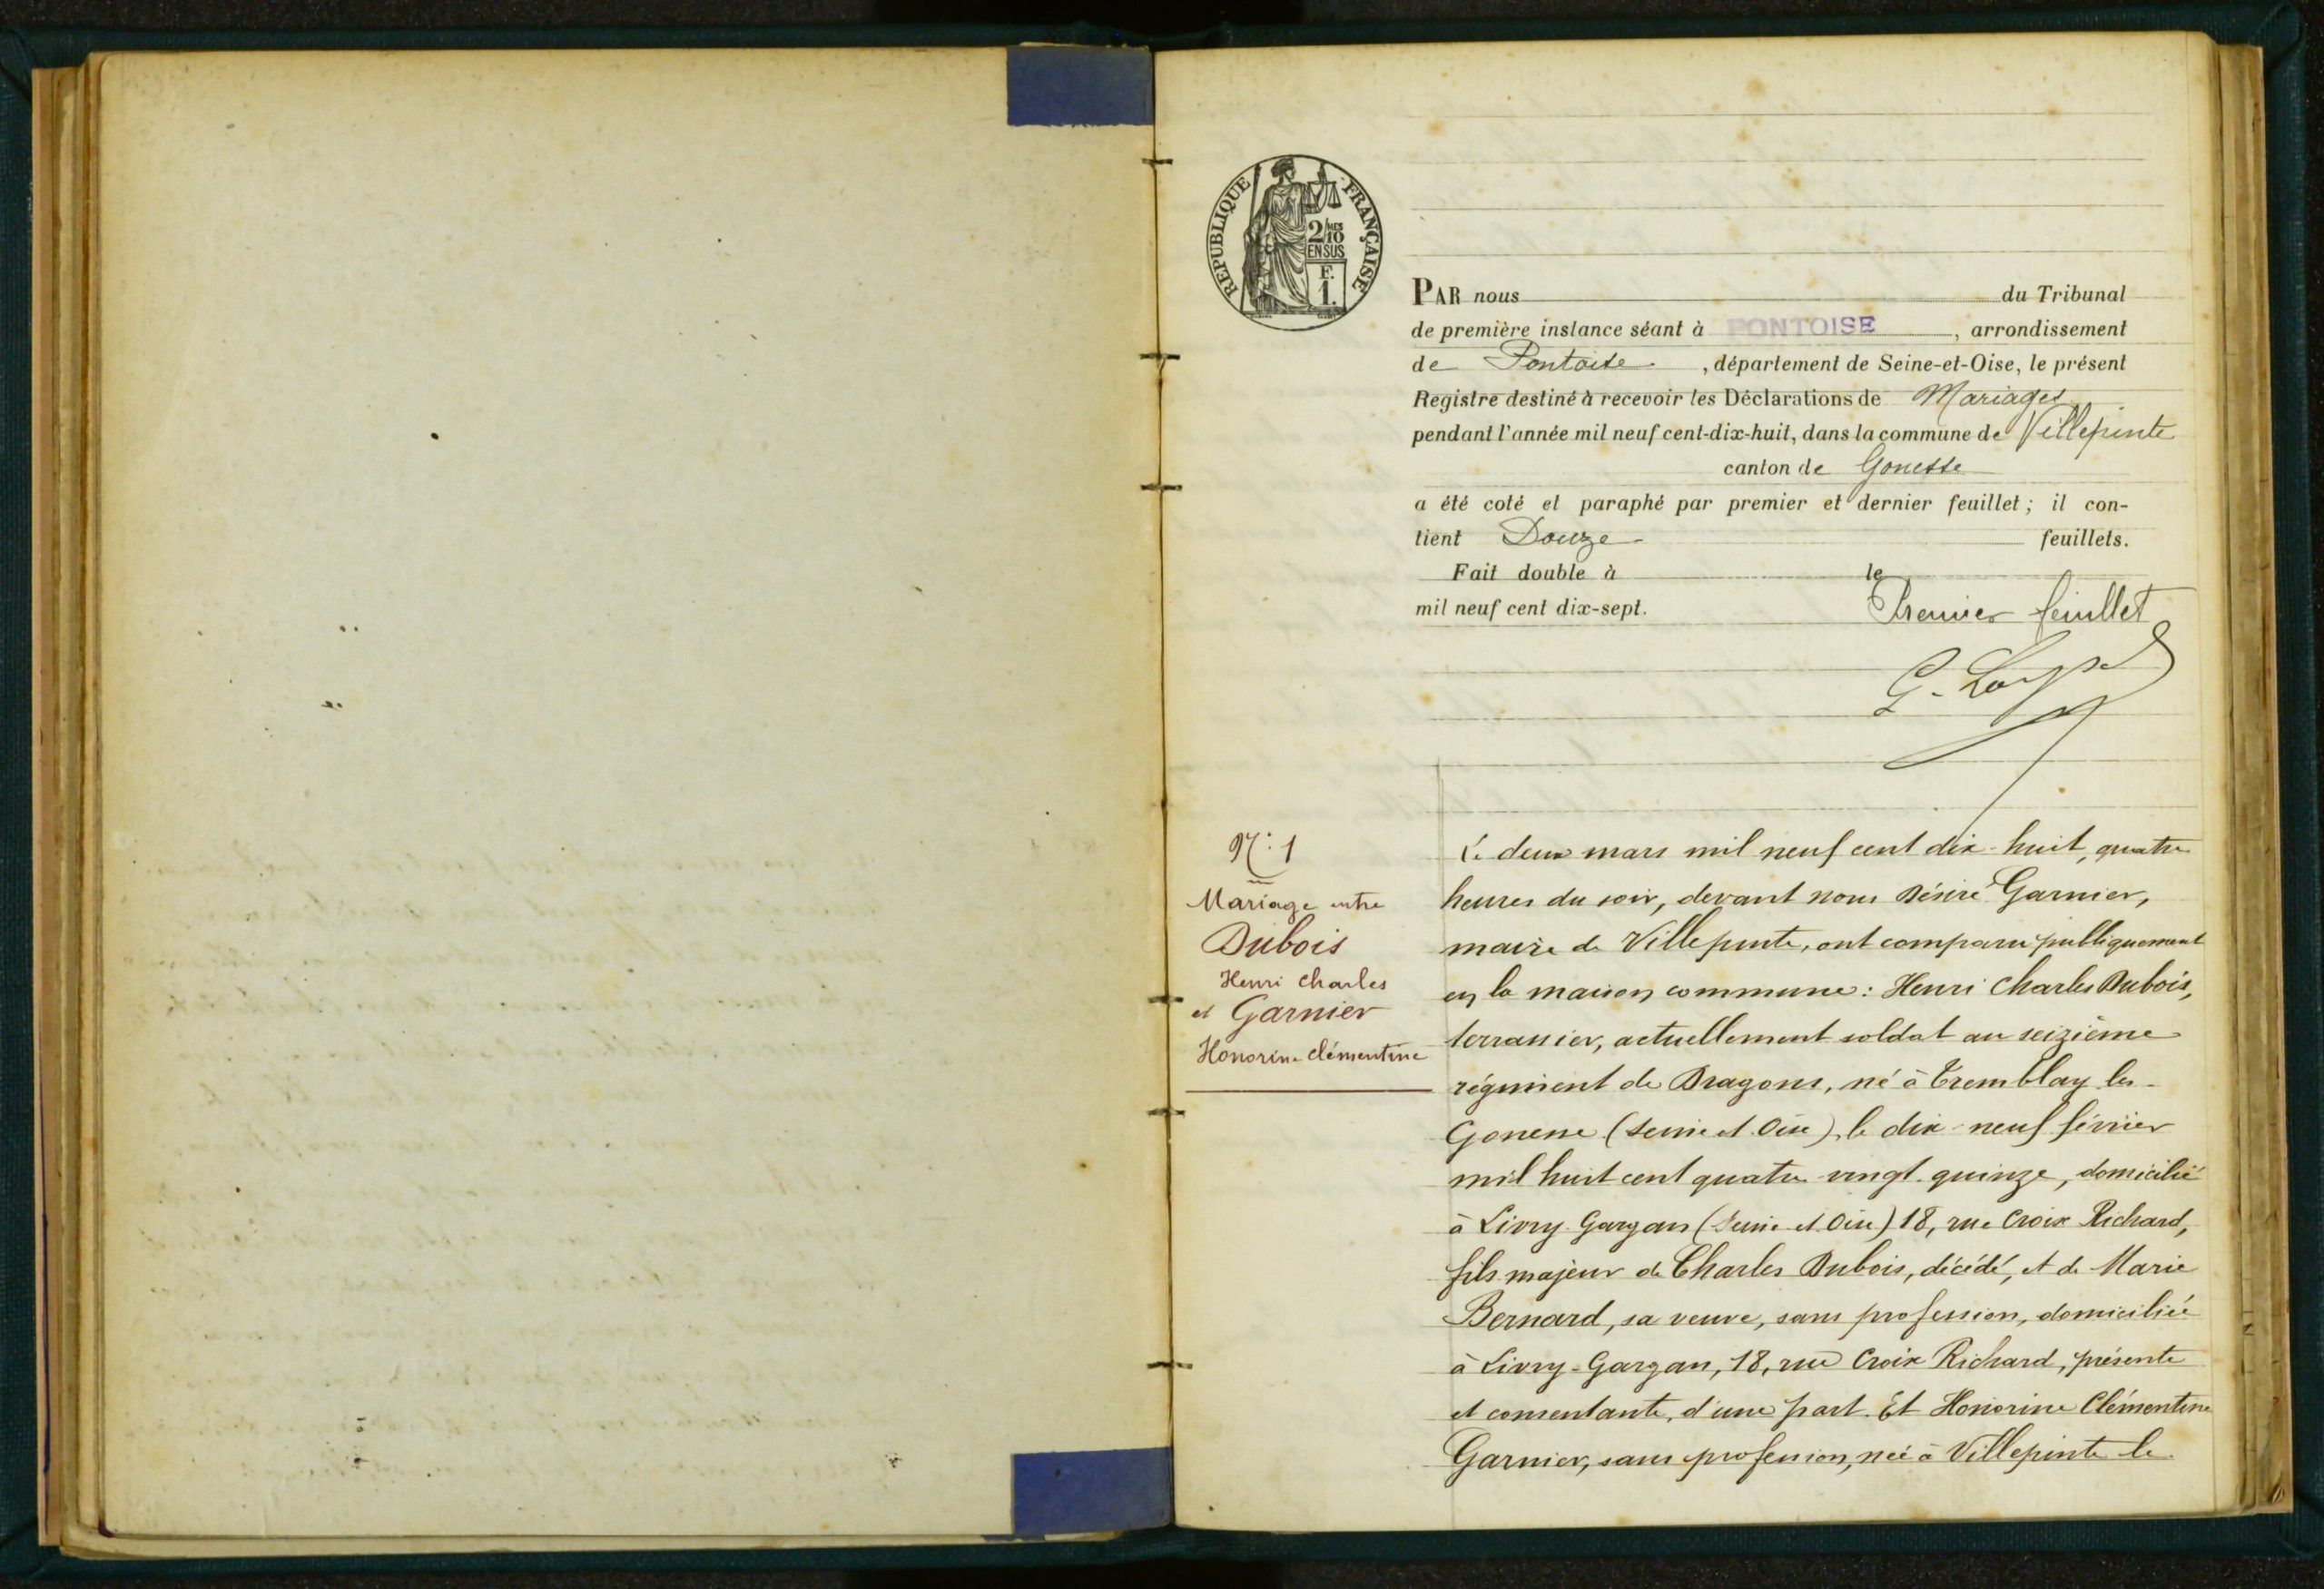 RÉPUBLIQUE FRANÇAISE
2/10 MES
EN SUS
F.
1.
PAR nous du Tribunal
de première instance séant à PONTOISE, arrondissement
de Pontoise, département de Seine-et-Oise, le présent
Registre destiné à recevoir les Déclarations de Mariages
pendant l'année mil neuf cent-dix-huit, dans la commune de Villepinte
canton de Gonesse
a été coté et paraphé par premier et dernier feuillet; il con-
tient Douze feuillets.
Fait double à le
mil neuf cent dix-sept. Premier feuillet
N: 1
Mariage entre
Dubois
Henri Charles
et Garnier
Honorine Clémentine
Le deux mars mil neuf cent dix-huit, quatre
heures du soir, devant nous Désiré Garnier,
maire de Villepinte, ont comparu publiquement
en la maison commune: Henri Charles Dubois,
terrassier, actuellement soldat au seizième
régiment de Dragons, né à Tremblay les-
Gonesse (Seine et Oise), le dix-neuf février
mil huit cent quatre-vingt-quinze, domicilié
à Livry-Gargan (Seine et Oise) 18, rue Croix Richard,
fils majeur de Charles Dubois, décédé, et de Marie
Bernard, sa veuve, sans profession, domiciliée
à Livry-Gargan, 18, rue Croix Richard, présente
et consentante, d'une part. Et Honorine Clémentine
Garnier, sans profession, née à Villepinte le